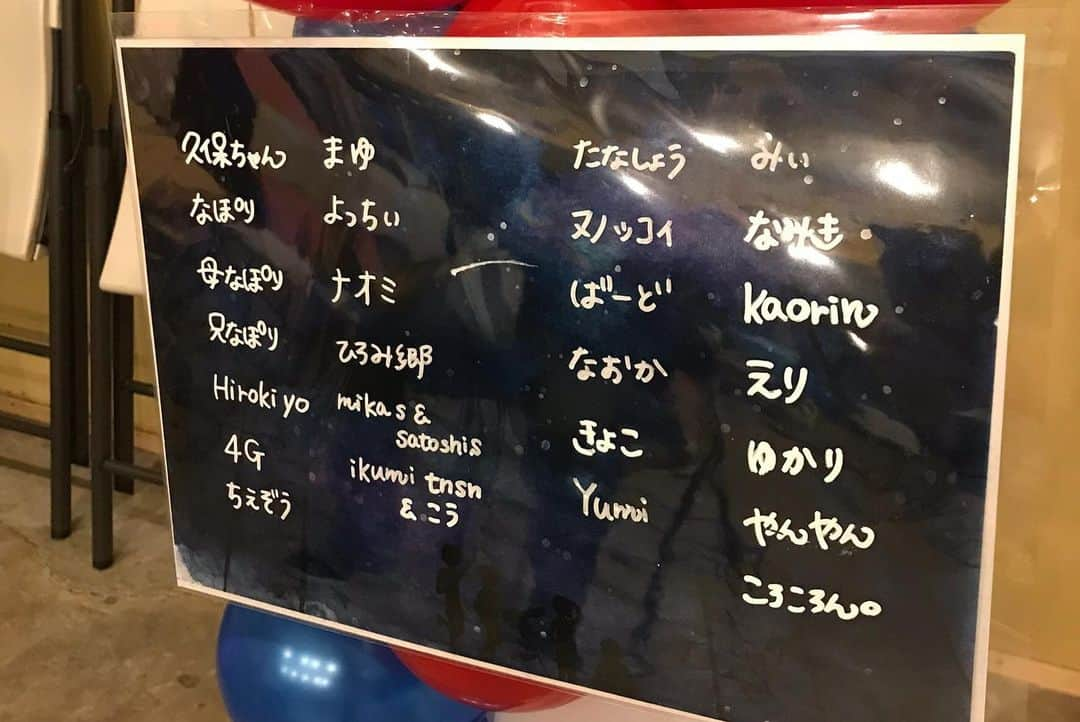 久保ちゃん
なぽり
母なぽり
兄なぽり
Hirokiyo
4G
ちえぞう
まゆ
よっちぃ
ナオミ
ひろみ郷
mika s &
satoshi s
ikumi tnsn
& こう
たなしょう
ヌノッコイ
ばーど
なおか
きよこ
Yumi
みぃ
なみき
kaorin
えり
ゆかり
やんやん
ころころん。